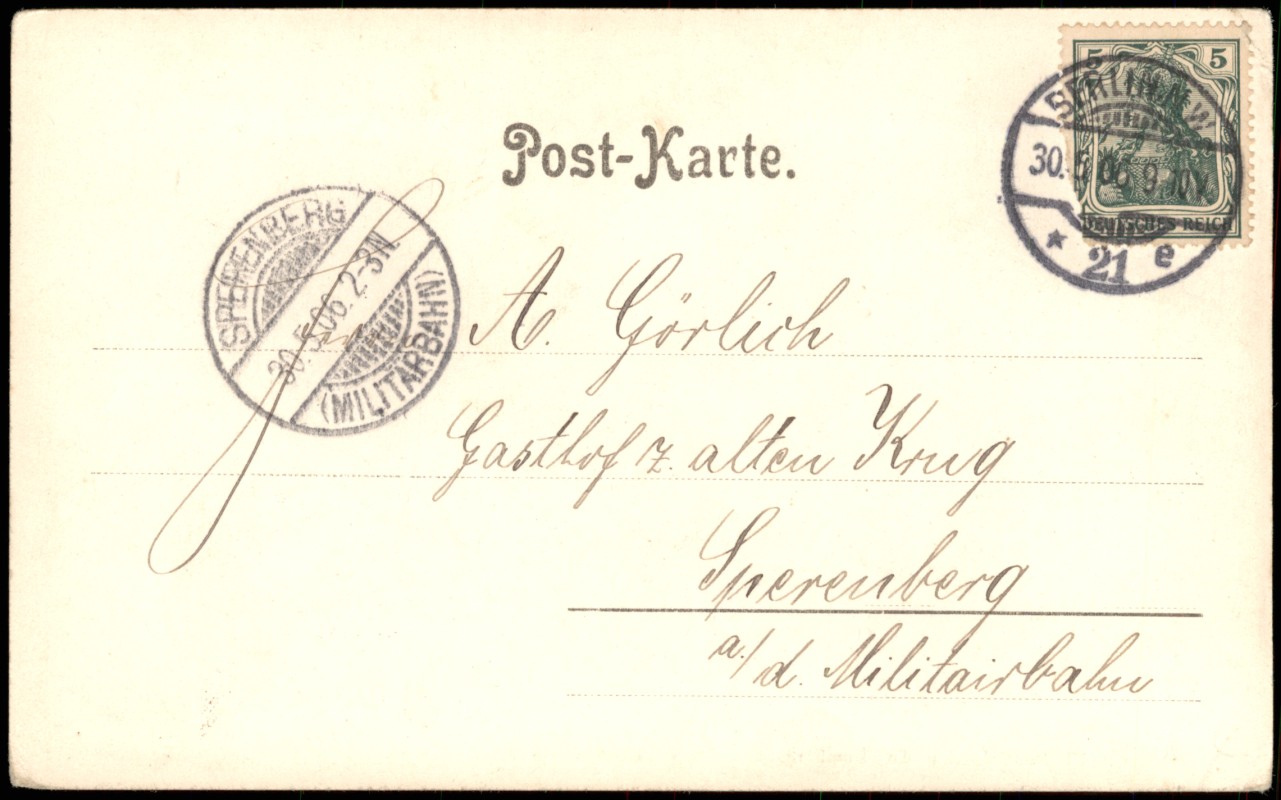 Post-Karte.
5 5
DEUTSCHES REICH
BERLIN
30.5.06 9-10V
* 21 e
SPERENBERG
30.5.06. 2-3N
(MILITÄRBAHN)
A. Görlich
Gasthof z. alten Krug
Sperenberg
a./d. Militairbahn